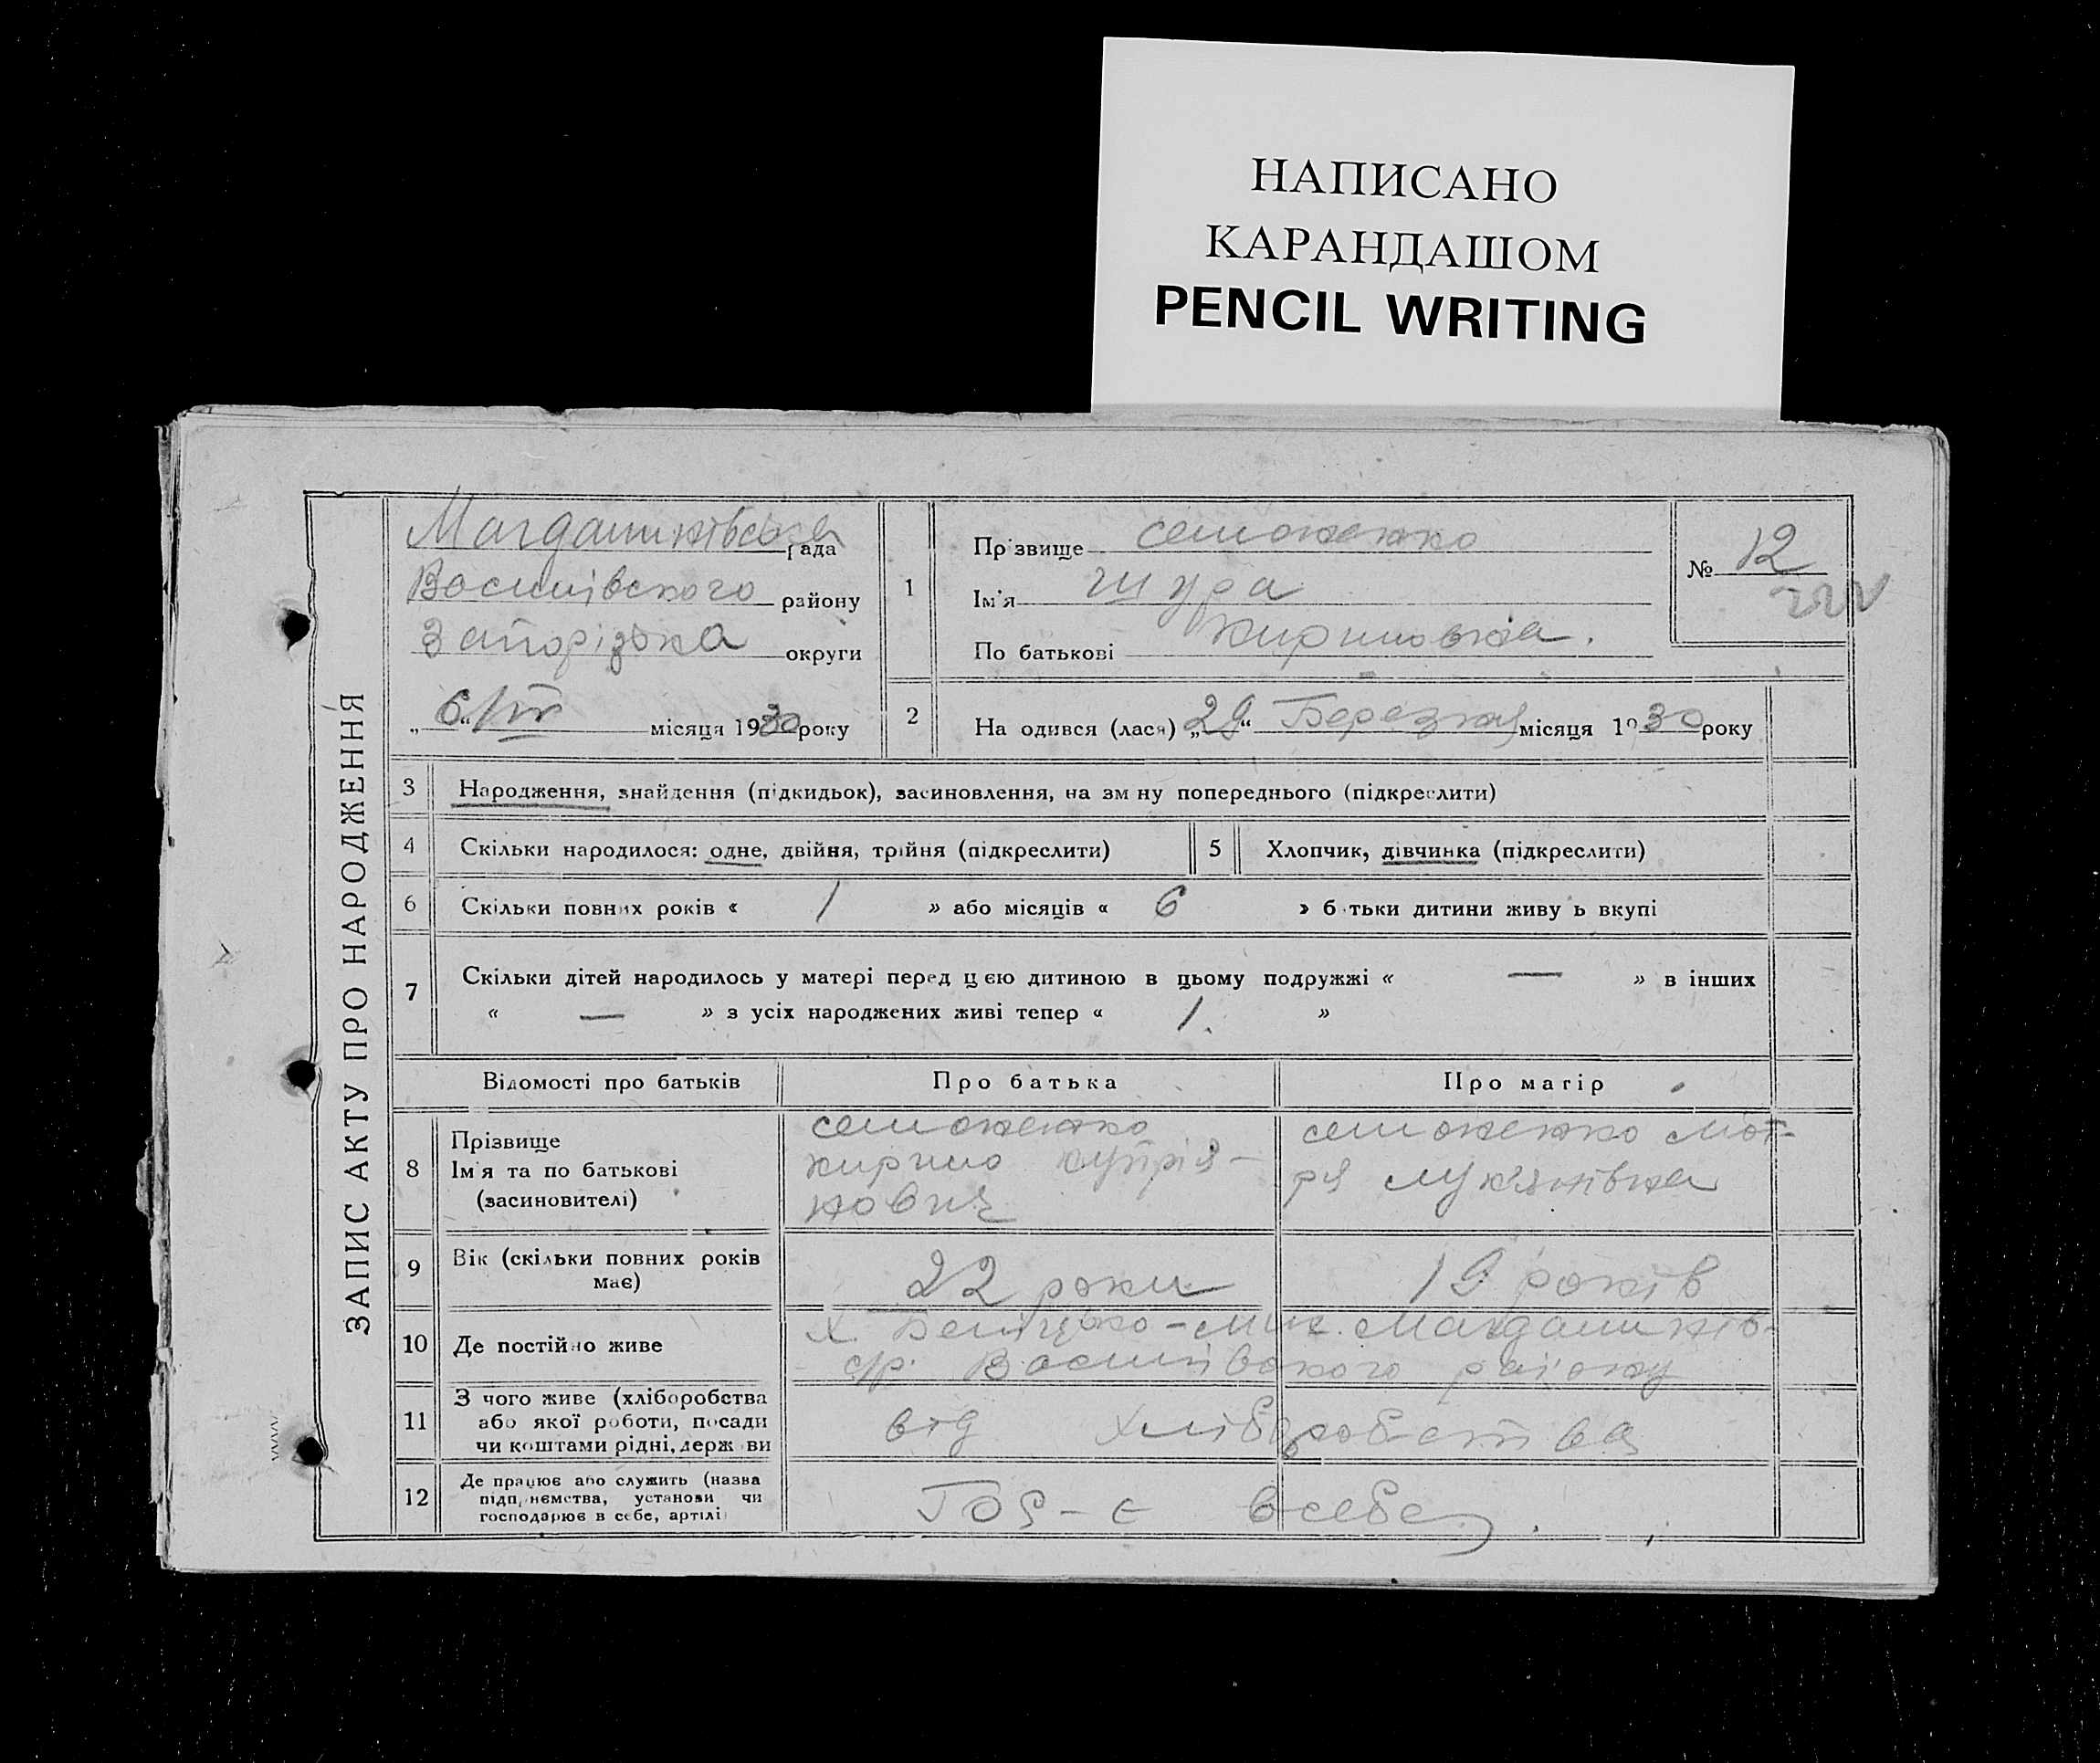 НАПИСАНО
КАРАНДАШОМ
PENCIL WRITING
ЗАПИС АКТУ ПРО НАРОДЖЕННЯ
Магдалинівська рада
Василівского району
Запорізька округи
„ 6 “ IV місяця 1930 року
1 Прізвище Семоненко
Ім'я Шура
По батькові Кириловна.
№ 12
2 На одився (лася) „29“ Березня місяця 1930 року
3 Народження, знайдення (підкидьок), засиновлення, на зм ну попереднього (підкреслити)
4 Скільки народилося: одне, двійня, трійня (підкреслити) 5 Хлопчик, дівчинка (підкреслити)
6 Скільки повних років « 1 » або місяців « 6 » б тьки дитини живу ь вкупі
7 Скільки дітей народилось у матері перед цією дитиною в цьому подружжі « — » в інших
« — » з усіх народжених живі тепер « 1. »
Відомості про батьків Про батька Про матір
8 Прізвище
Ім'я та по батькові
(засиновителі)
Семоненко
Кирило Купрія-
нович
Семоненко Мот-
ря Лук'янівна
9 Вік (скільки повних років
має)
22 роки 19 років
10 Де постійно живе
с/р. Василівського району
11 З чого живе (хліборобства
або якої роботи, посади
чи коштами рідні, держ ви
від хліборобства
12 Де працює або служить (назва
підприємства, установи чи
господарює в себе, артілі)
в себе.